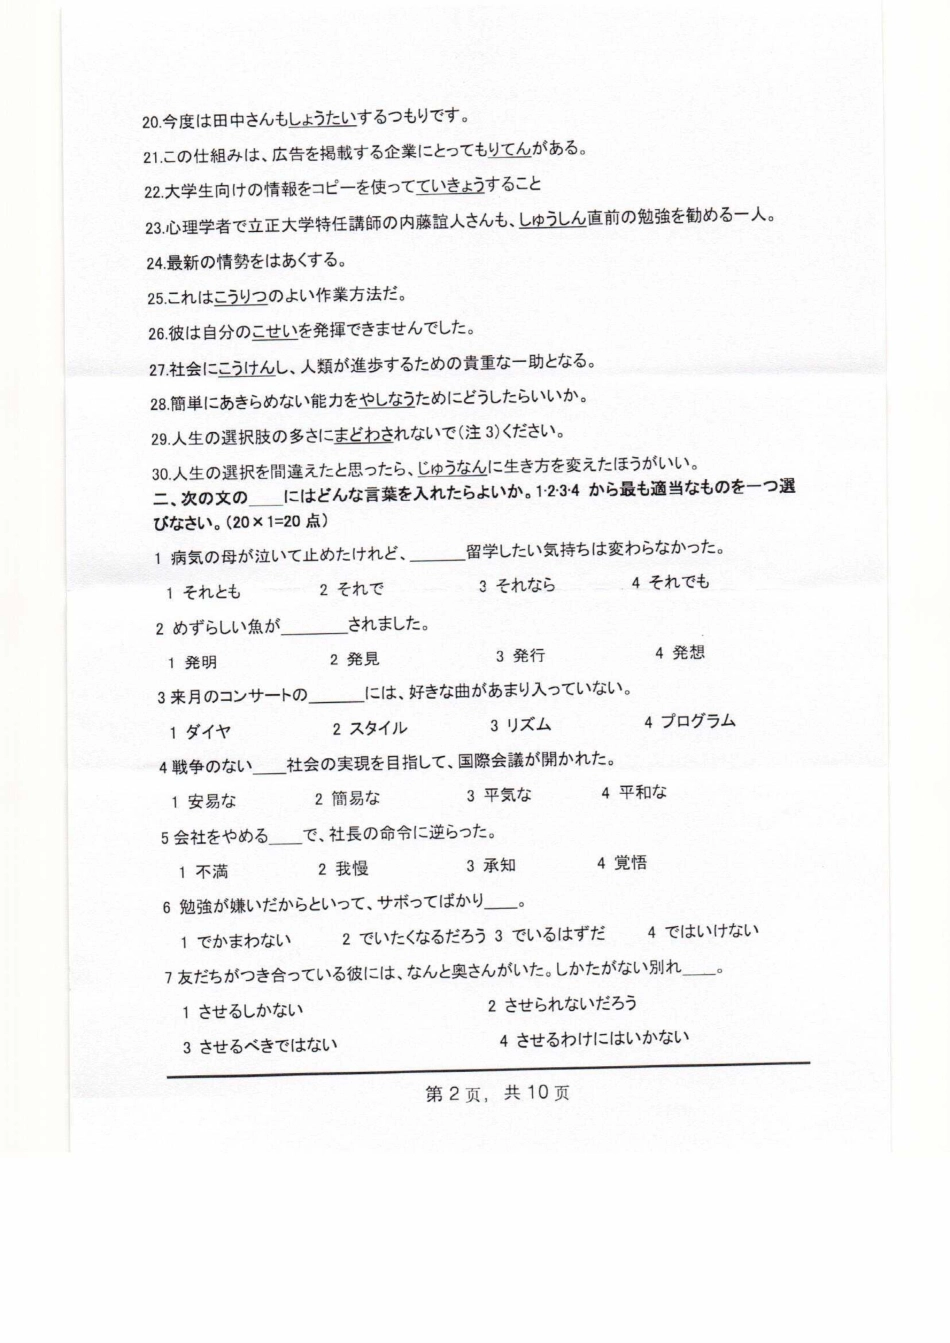 20.今度は田中さんもしょうたいするつもりです。
21.この仕組みは、広告を掲載する企業にとってもりてんがある。
22.大学生向けの情報をコピーを使ってていきょうすること
23.心理学者で立正大学特任講師の内藤誼人さんも、しゅうしん直前の勉強を勧める一人。
24.最新の情勢をはあくする。
25.これはこうりつのよい作業方法だ。
26.彼は自分のこせいを発揮できませんでした。
27.社会にこうけんし、人類が進歩するための貴重な一助となる。
28.簡単にあきらめない能力をやしなうためにどうしたらいいか。
29.人生の選択肢の多さにまどわされないで(注3)ください。
30.人生の選択を間違えたと思ったら、じゅうなんに生き方を変えたほうがいい。
二、次の文の____にはどんな言葉を入れたらよいか。1·2·3·4 から最も適当なものを一つ選
びなさい。(20×1=20 点)
1 病気の母が泣いて止めたけれど、______留学したい気持ちは変わらなかった。
1 それとも 2 それで 3 それなら 4 それでも
2 めずらしい魚が_______されました。
1 発明 2 発見 3 発行 4 発想
3 来月のコンサートの______には、好きな曲があまり入っていない。
1 ダイヤ 2 スタイル 3 リズム 4 プログラム
4 戦争のない____社会の実現を目指して、国際会議が開かれた。
1 安易な 2 簡易な 3 平気な 4 平和な
5 会社をやめる____で、社長の命令に逆らった。
1 不満 2 我慢 3 承知 4 覚悟
6 勉強が嫌いだからといって、サボってばかり____。
1 でかまわない 2 でいたくなるだろう 3 でいるはずだ 4 ではいけない
7 友だちがつき合っている彼には、なんと奥さんがいた。しかたがない別れ____。
1 させるしかない 2 させられないだろう
3 させるべきではない 4 させるわけにはいかない
第 2 页，共 10 页